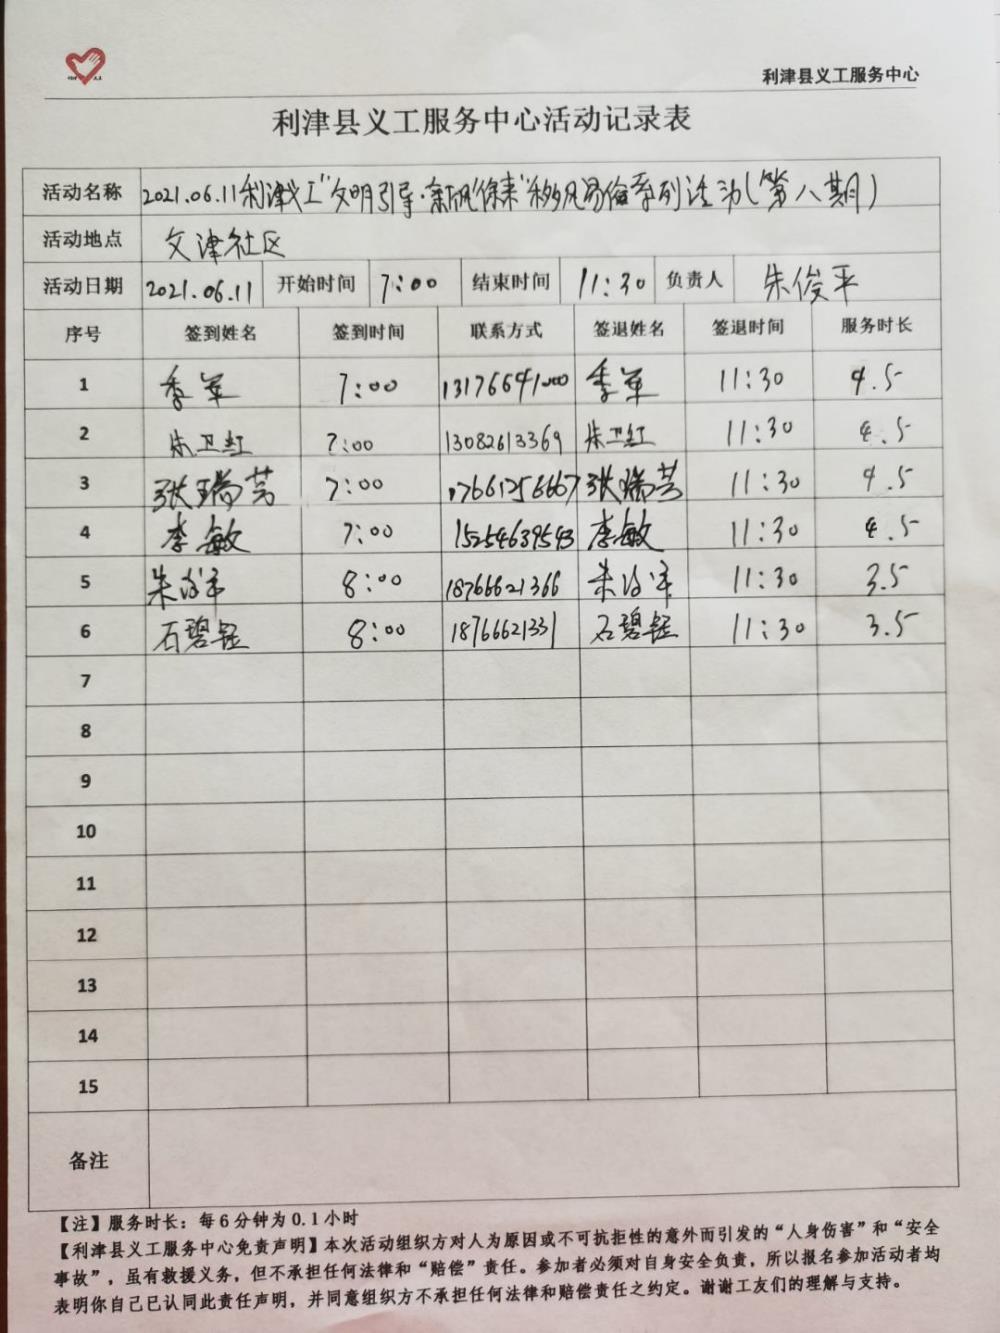 利津县义工服务中心
利津县义工服务中心活动记录表
活动名称 2021.06.11利津义工"文明引导·新风徐来"移风易俗系列活动(第八期)
活动地点 文津社区
活动日期 2021.06.11 开始时间 7:00 结束时间 11:30 负责人 朱俊平
序号 签到姓名 签到时间 联系方式 签退姓名 签退时间 服务时长
1 季军 7:00 13176641000 季军 11:30 4.5
2 朱卫红 7:00 13082613369 朱卫红 11:30 4.5
3 张瑞芸 7:00 17661256667 张瑞芸 11:30 4.5
4 李敏 7:00 15254639543 李敏 11:30 4.5
5 8:00 18766621366 11:30 3.5
6 石碧钰 8:00 18766621331 石碧钰 11:30 3.5
7
8
9
10
11
12
13
14
15
备注
【注】服务时长：每6分钟为0.1小时
【利津县义工服务中心免责声明】本次活动组织方对人为原因或不可抗拒性的意外而引发的“人身伤害”和“安全
事故”，虽有救援义务，但不承担任何法律和“赔偿”责任。参加者必须对自身安全负责，所以报名参加活动者均
表明你自己已认同此责任声明，并同意组织方不承担任何法律和赔偿责任之约定。谢谢工友们的理解与支持。